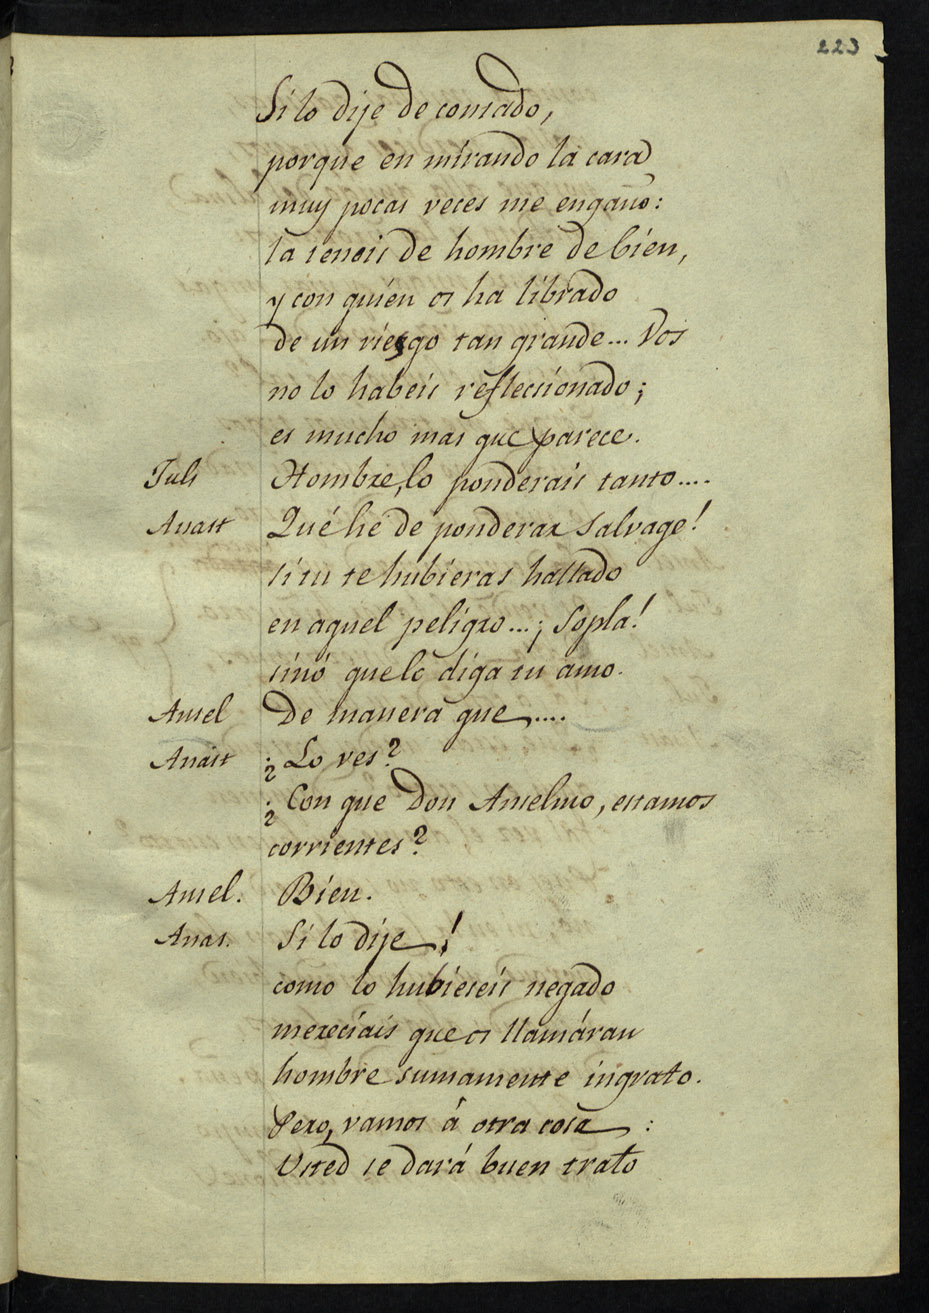 223
Si lo dije de contado,
porque en mirando la cara
muy pocas veces me engaño:
la teneis de hombre de bien,
y con quien os ha librado
de un riesgo tan grande... Vos
no lo habeis reflecsionado;
es mucho mas que parece.
Juls Hombre, lo ponderais tanto....
Anast Qué hé de ponderar salvage!
si tu te hubieras hallado
en aquel peligro...; Sopla!
sinó que lo diga tu amo.
Ansel De manera que....
Anast ¿Lo ves?
¿Con que Don Anselmo, estamos
corrientes?
Ansel. Bien.
Anas. Si lo dije!
como lo hubieseis negado
mereciais que os llamáran
hombre sumamente ingrato.
Pero, vamos á otra cosa:
Usted se dará buen trato